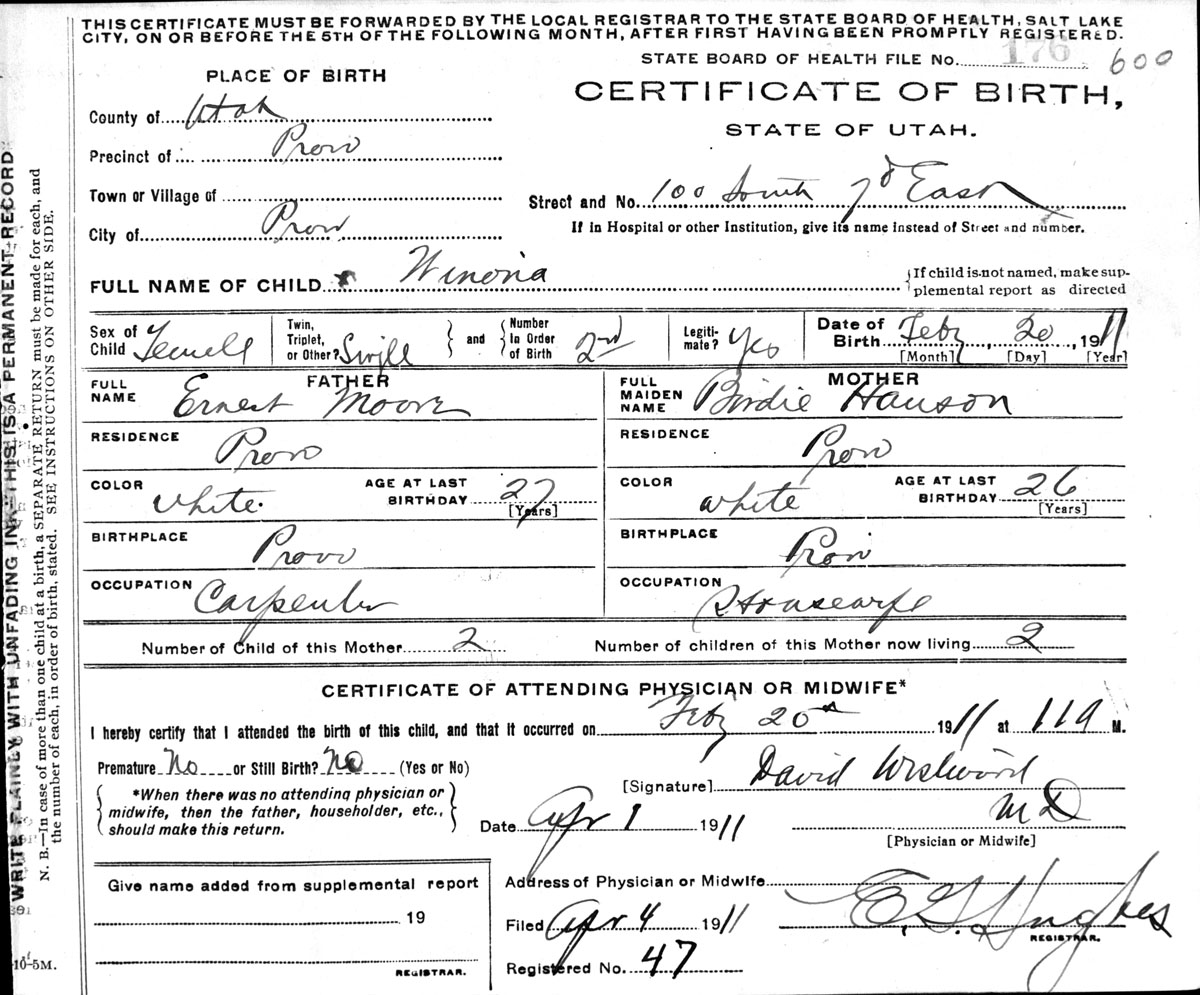 THIS CERTIFICATE MUST BE FORWARDED BY THE LOCAL REGISTRAR TO THE STATE BOARD OF HEALTH, SALT LAKE
CITY, ON OR BEFORE THE 5TH OF THE FOLLOWING MONTH, AFTER FIRST HAVING BEEN PROMPTLY REGISTERED.
STATE BOARD OF HEALTH FILE No. 176 600
PLACE OF BIRTH
CERTIFICATE OF BIRTH,
STATE OF UTAH.
County of Utah
Precinct of Provo
Town or Village of
City of Provo
Street and No. 100 South 7th East
If in Hospital or other Institution, give its name instead of Street and number.
FULL NAME OF CHILD Winona
{If child is not named, make sup-
plemental report as directed
Sex of Child Femell
Twin, Triplet, or Other? Singll
and
Number In Order of Birth 2nd
Legiti-mate? Yes
Date of Birth Feby 20, 1911
[Month] [Day] [Year]
FATHER
FULL NAME Ernest Moore
RESIDENCE Provo
COLOR white
AGE AT LAST BIRTHDAY 27
[Years]
BIRTHPLACE Provo
OCCUPATION Carpenter
MOTHER
FULL MAIDEN NAME Birdie Hanson
RESIDENCE Provo
COLOR white
AGE AT LAST BIRTHDAY 26
[Years]
BIRTHPLACE Provo
OCCUPATION Housewife
Number of Child of this Mother 2 Number of children of this Mother now living 2
CERTIFICATE OF ATTENDING PHYSICIAN OR MIDWIFE*
I hereby certify that I attended the birth of this child, and that it occurred on Feby 20th 1911 at 11 a M.
Premature No or Still Birth? No (Yes or No)
*When there was no attending physician or
midwife, then the father, householder, etc.,
should make this return.
[Signature] David Westwood
M D
[Physician or Midwife]
Date Apr 1 1911
Give name added from supplemental report
19
REGISTRAR.
Address of Physician or Midwife
Filed Apr 4 1911
E. G. Hughes
REGISTRAR.
Registered No. 47
WRITE PLAINLY WITH UNFADING INK—THIS IS A PERMANENT RECORD
N. B.—In case of more than one child at a birth, a SEPARATE RETURN must be made for each, and
the number of each, in order of birth, stated. SEE INSTRUCTIONS ON OTHER SIDE.
10-5M.